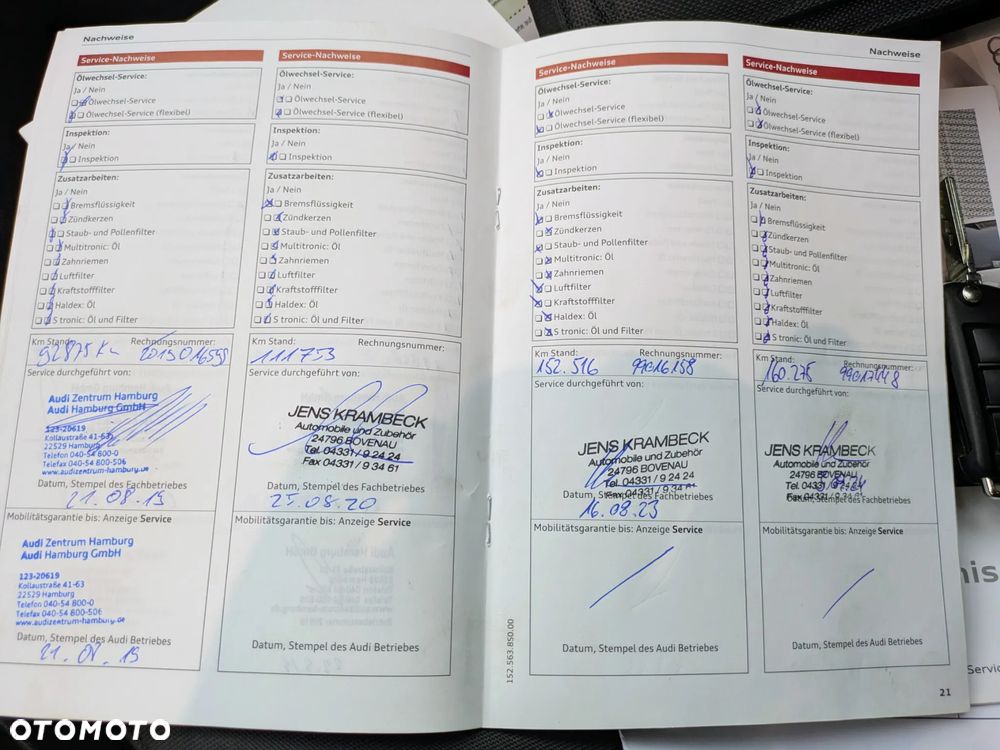 Nachweise
Service-Nachweise
Ölwechsel-Service:
Ja / Nein
Ölwechsel-Service
Ölwechsel-Service (flexibel)
Inspektion:
Ja / Nein
Inspektion
Zusatzarbeiten:
Ja / Nein
Bremsflüssigkeit
Zündkerzen
Staub- und Pollenfilter
Multitronic: Öl
Zahnriemen
Luftfilter
Kraftstofffilter
Haldex: Öl
S tronic: Öl und Filter
Km Stand: Rechnungsnummer:
92875 Km
Service durchgeführt von:
Audi Zentrum Hamburg
Audi Hamburg GmbH
123-20619
Kollaustraße 41-63
22529 Hamburg
Telefon 040-54 800-0
Telefax 040-54 800-506
www.audizentrum-hamburg.de
Datum, Stempel des Fachbetriebes
21.08.19
Mobilitätsgarantie bis: Anzeige Service
Audi Zentrum Hamburg
Audi Hamburg GmbH
123-20619
Kollaustraße 41-63
22529 Hamburg
Telefon 040-54 800-0
Telefax 040-54 800-506
www.audizentrum-hamburg.de
Datum, Stempel des Audi Betriebes
21.08.19
Service-Nachweise
Ölwechsel-Service:
Ja / Nein
Ölwechsel-Service
Ölwechsel-Service (flexibel)
Inspektion:
Ja / Nein
Inspektion
Zusatzarbeiten:
Ja / Nein
Bremsflüssigkeit
Zündkerzen
Staub- und Pollenfilter
Multitronic: Öl
Zahnriemen
Luftfilter
Kraftstofffilter
Haldex: Öl
S tronic: Öl und Filter
Km Stand: Rechnungsnummer:
111753
Service durchgeführt von:
JENS KRAMBECK
Automobile und Zubehör
24796 BOVENAU
Tel. 04331 / 9 24 24
Fax 04331 / 9 34 61
Datum, Stempel des Fachbetriebes
25.08.20
Mobilitätsgarantie bis: Anzeige Service
Datum, Stempel des Audi Betriebes
Nachweise
Service-Nachweise
Ölwechsel-Service:
Ja / Nein
Ölwechsel-Service
Ölwechsel-Service (flexibel)
Inspektion:
Ja / Nein
Inspektion
Zusatzarbeiten:
Ja / Nein
Bremsflüssigkeit
Zündkerzen
Staub- und Pollenfilter
Multitronic: Öl
Zahnriemen
Luftfilter
Kraftstofffilter
Haldex: Öl
S tronic: Öl und Filter
Km Stand: Rechnungsnummer:
152.516
Service durchgeführt von:
JENS KRAMBECK
Automobile und Zubehör
24796 BOVENAU
Tel. 04331 / 9 24 24
Fax 04331 / 9 34 61
Datum, Stempel des Fachbetriebes
16.08.23
Mobilitätsgarantie bis: Anzeige Service
Datum, Stempel des Audi Betriebes
152.563.850.00
Service-Nachweise
Ölwechsel-Service:
Ja / Nein
Ölwechsel-Service
Ölwechsel-Service (flexibel)
Inspektion:
Ja / Nein
Inspektion
Zusatzarbeiten:
Ja / Nein
Bremsflüssigkeit
Zündkerzen
Staub- und Pollenfilter
Multitronic: Öl
Zahnriemen
Luftfilter
Kraftstofffilter
Haldex: Öl
S tronic: Öl und Filter
Km Stand: Rechnungsnummer:
160.275
Service durchgeführt von:
JENS KRAMBECK
Automobile und Zubehör
24796 BOVENAU
Tel. 04331 /
Fax 04331 / 9 34 61
Datum, Stempel des Fachbetriebes
Mobilitätsgarantie bis: Anzeige Service
Datum, Stempel des Audi Betriebes
21
OTOMOTO